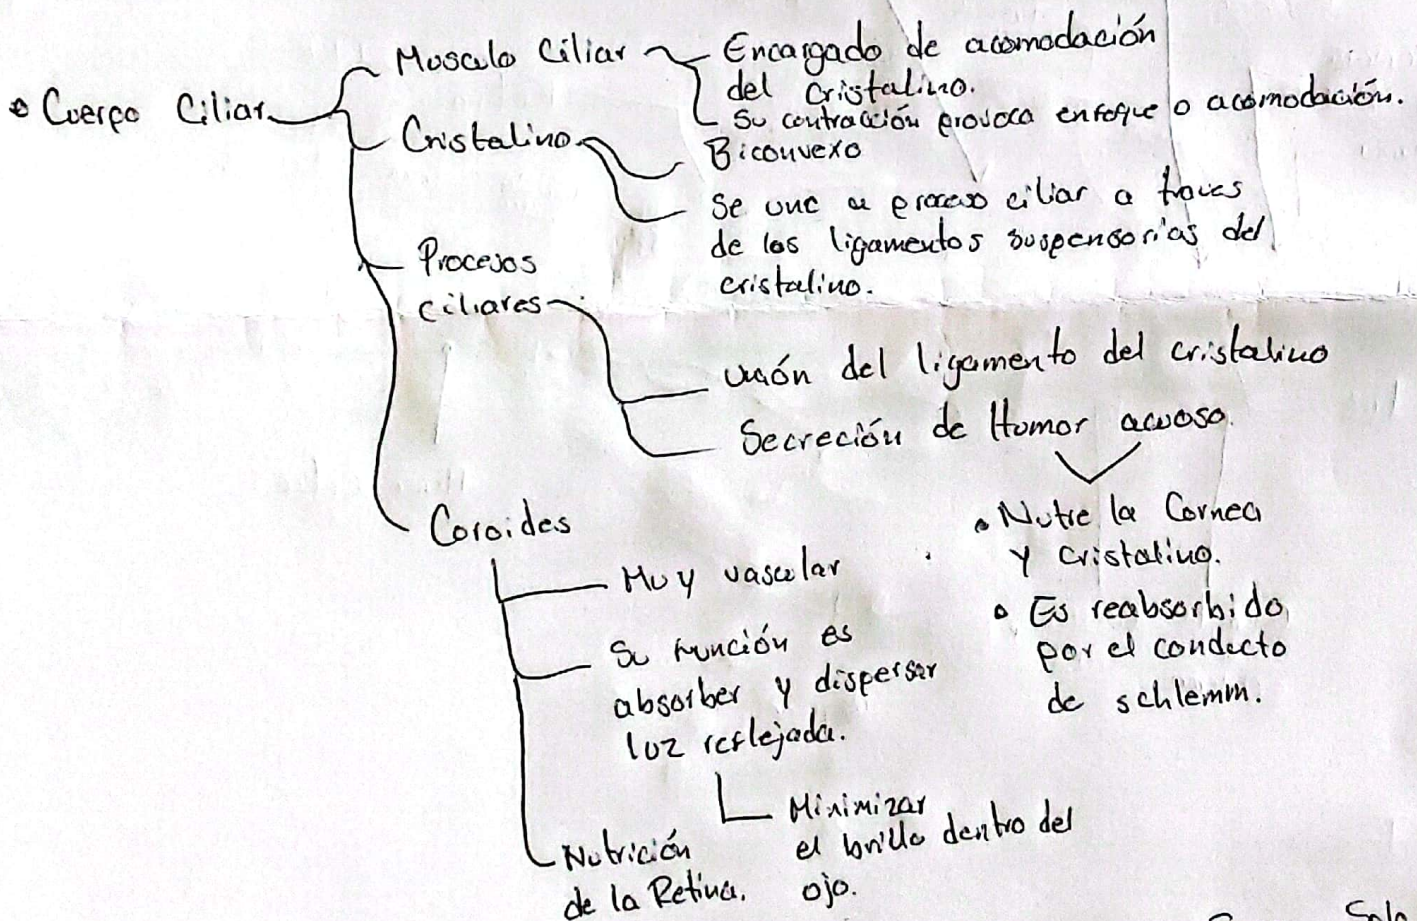 Cuerpo Ciliar
Musculo Ciliar
Encargado de acomodación
del Cristalino.
Su contracción provoca enfoque o acomodación.
Cristalino
Biconvexo
Se une a proceso ciliar a traves
de los ligamentos suspensorias del
cristalino.
Procesos
ciliares
unión del ligamento del cristalino
Secreción de Humor acuoso.
• Nutre la Cornea
y Cristalino.
• Es reabsorbido
por el conducto
de schlemm.
Coroides
Muy vascular
Su función es
absorber y dispersar
luz reflejada.
Minimizar
el brillo dentro del
ojo.
Nutrición
de la Retina.